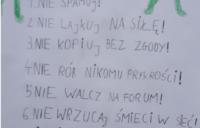 1. NIE SPAMUJ!
2. NIE LAJKUJ NA SIŁĘ!
3. NIE KOPIUJ BEZ ZGODY!
4. NIE RÓB NIKOMU PRZYKROŚCI!
5. NIE WALCZ NA FORUM!
6. NIE WRZUCAJ ŚMIECI W SIEĆ!